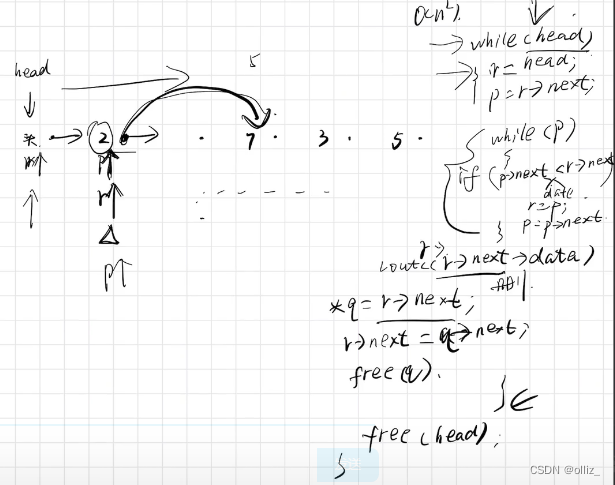 O(n²).
while (head)
{ r = head;
p = r->next;
5
head
* -> 2 -> . 7 . 3 . 5 .
while (p)
{
if (p->next < r->next
data
r = p;
p = p->next
}
r->
cout<<(r->next->data)
*q = r->next;
r->next = q->next;
free(q).
}
free(head);
}
CSDN @olliz_